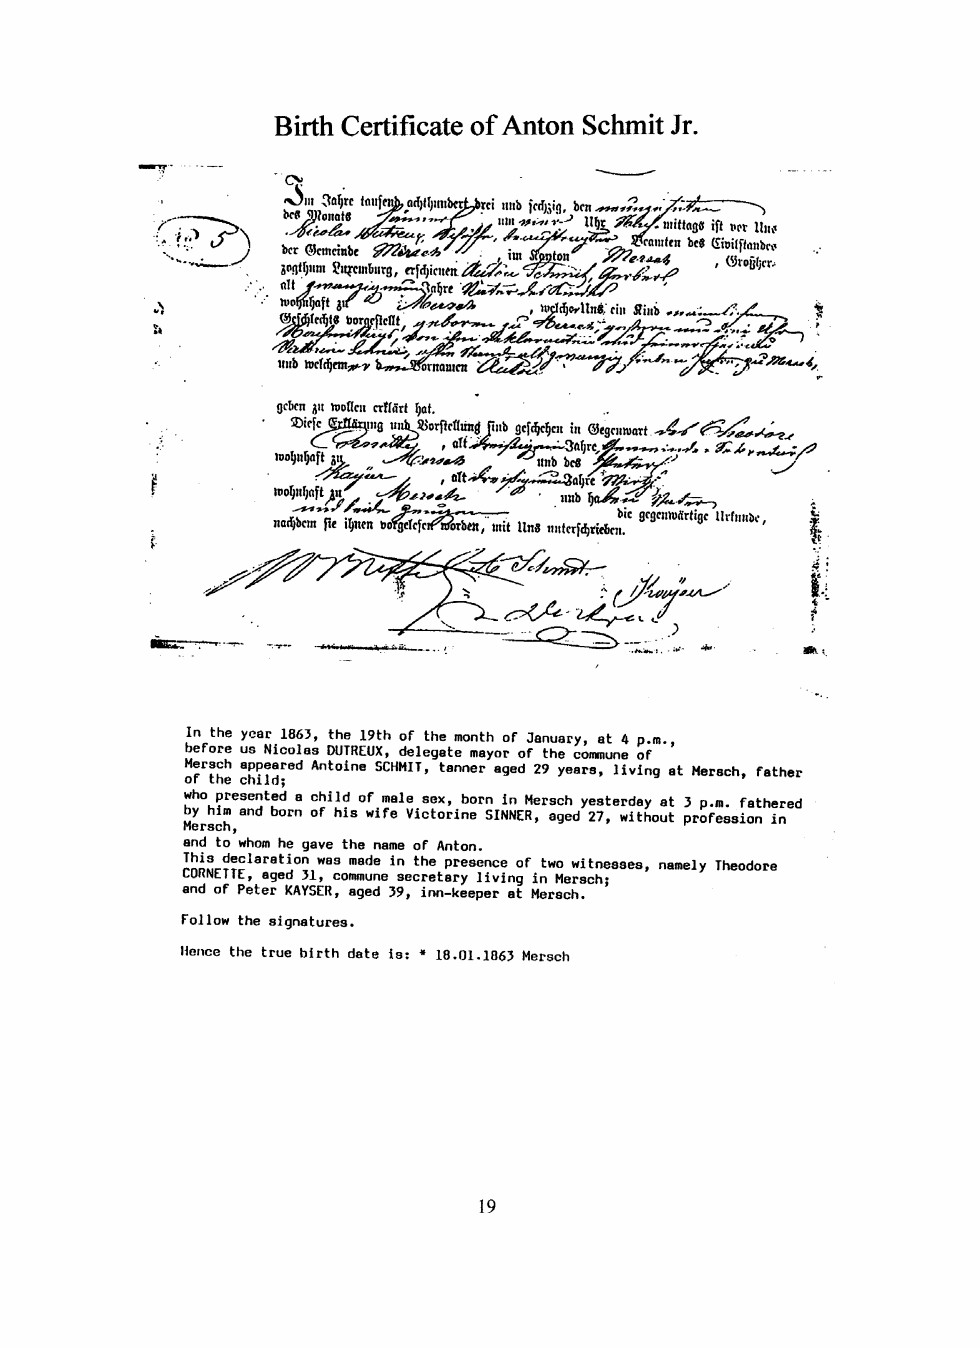 Birth Certificate of Anton Schmit Jr.
No 5
Im Jahre tausend achthundert drei und sechzig, den neunzehnten
des Monats Januar um vier Uhr Nach-mittags ist vor Uns
Nicolas Dutreux, Schöffe, beauftragter Beamten des Civilstandes
der Gemeinde Mersch, im Kanton Mersch, Großher-
zogthum Luxemburg, erschienen Anton Schmit, Gerber,
alt zwanzig neun Jahre Vater des Kindes
wohnhaft zu Mersch, welcher Uns ein Kind männlichen
Geschlechts vorgestellt, geboren zu Mersch, gestern um drei Uhr
Nachmittags, von ihm Deklaranten und seiner
alt zwanzig sieben zu Mersch,
und welchem er den Vornamen Anton
geben zu wollen erklärt hat.
Diese Erklärung und Vorstellung sind geschehen in Gegenwart des Theodore
Cornette, alt dreißig ein Jahre, Gemeinde-Sekretär
wohnhaft zu Mersch und des Peter
Kayser, alt dreißig neun Jahre Wirth
wohnhaft zu Mersch und haben Vater
und beide Zeugen die gegenwärtige Urkunde,
nachdem sie ihnen vorgelesen worden, mit Uns unterschrieben.
Cornette Schmit
Kayser
Dutreux
In the year 1863, the 19th of the month of January, at 4 p.m.,
before us Nicolas DUTREUX, delegate mayor of the commune of
Mersch appeared Antoine SCHMIT, tanner aged 29 years, living at Mersch, father
of the child;
who presented a child of male sex, born in Mersch yesterday at 3 p.m. fathered
by him and born of his wife Victorine SINNER, aged 27, without profession in
Mersch,
and to whom he gave the name of Anton.
This declaration was made in the presence of two witnesses, namely Theodore
CORNETTE, aged 31, commune secretary living in Mersch;
and of Peter KAYSER, aged 39, inn-keeper at Mersch.
Follow the signatures.
Hence the true birth date is: * 18.01.1863 Mersch
19